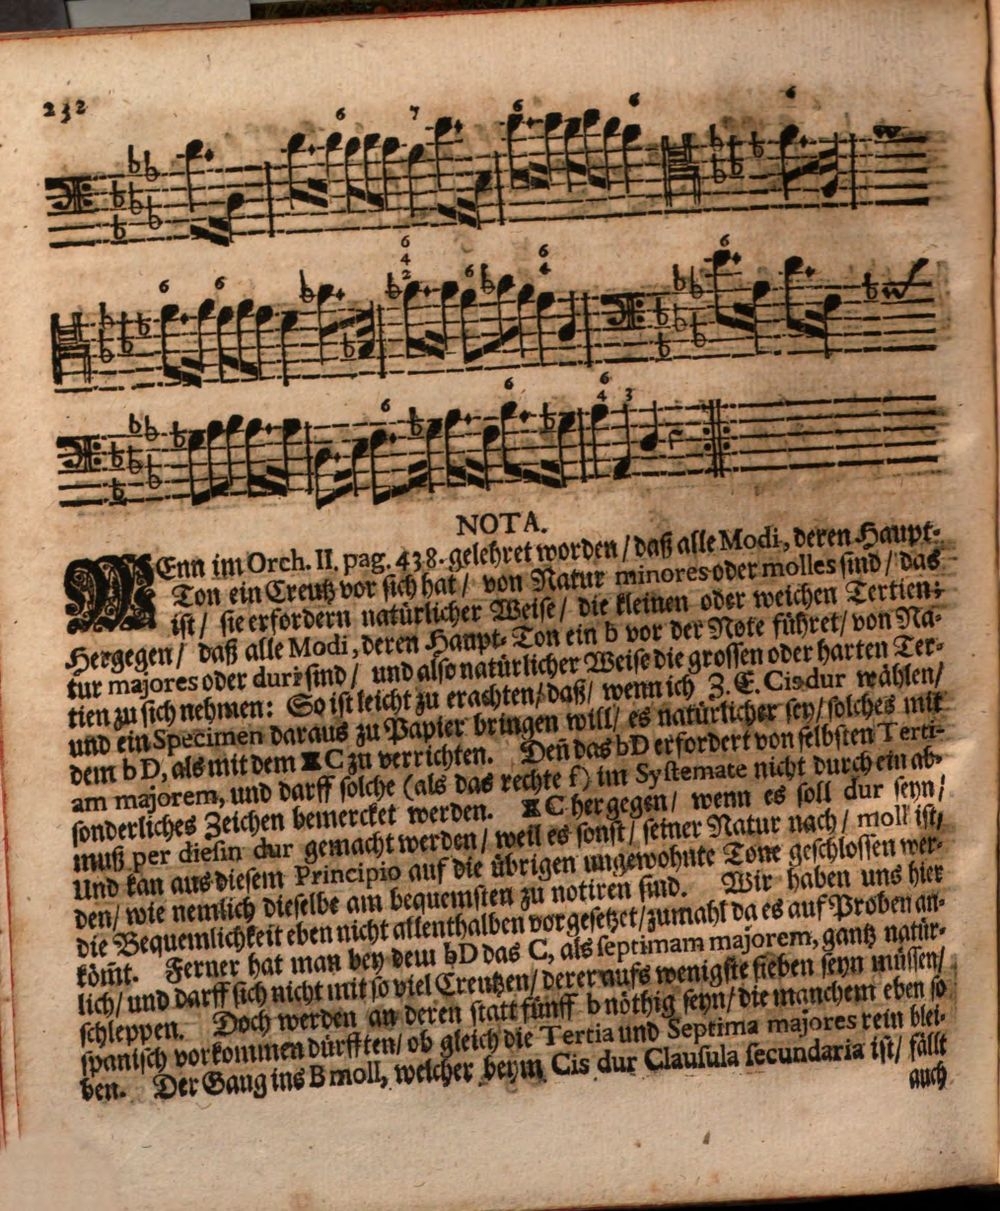 232
6 7 6 6 6
6 6 6 4 2 6 6 4 6
6 6 6 4 3
NOTA.
WEnn im Orch. II. pag. 438. gelehret worden / daß alle Modi, deren Haupt-
Ton ein Creutz vor sich hat / von Natur minores oder molles sind / das
ist / sie erfordern natürlicher Weise / die kleinen oder weichen Tertien;
Hergegen / daß alle Modi, deren Haupt-Ton ein b vor der Note führet / von Na-
tur majores oder duri sind / und also natürlicher Weise die grossen oder harten Ter-
tien zu sich nehmen: So ist leicht zu erachten / daß / wenn ich Z. E. Cis dur wählen /
und ein Specimen daraus zu Papier bringen will / es natürlicher sey / solches mit
dem bD, als mit dem ⌗C zu verrichten. Deñ das bD erfordert von selbsten Terti-
am majorem, und darff solche (als das rechte f) im Systemate nicht durch ein ab-
sonderliches Zeichen bemercket werden. ⌗C hergegen / wenn es soll dur seyn /
muß per diesin dur gemacht werden / weil es sonst / seiner Natur nach / moll ist /
Und kan aus diesem Principio auf die übrigen ungewohnte Tone geschlossen wer-
den / wie nemlich dieselbe am bequemsten zu notiren sind. Wir haben uns hier
die Bequemlichkeit eben nicht allenthalben vorgesetzet / zumahl da es auf Proben an-
köm̃t. Ferner hat man bey dem bD das C, als septimam majorem, gantz natür-
lich / und darff sich nicht mit so viel Creutzen / derer aufs wenigste sieben seyn müssen /
schleppen. Doch werden an deren statt fünff b nöthig seyn / die manchem eben so
spanisch vorkommen dürfften / ob gleich die Tertia und Septima majores rein blei-
ben. Der Gang ins B moll, welcher beym Cis dur Clausula secundaria ist / fällt
auch